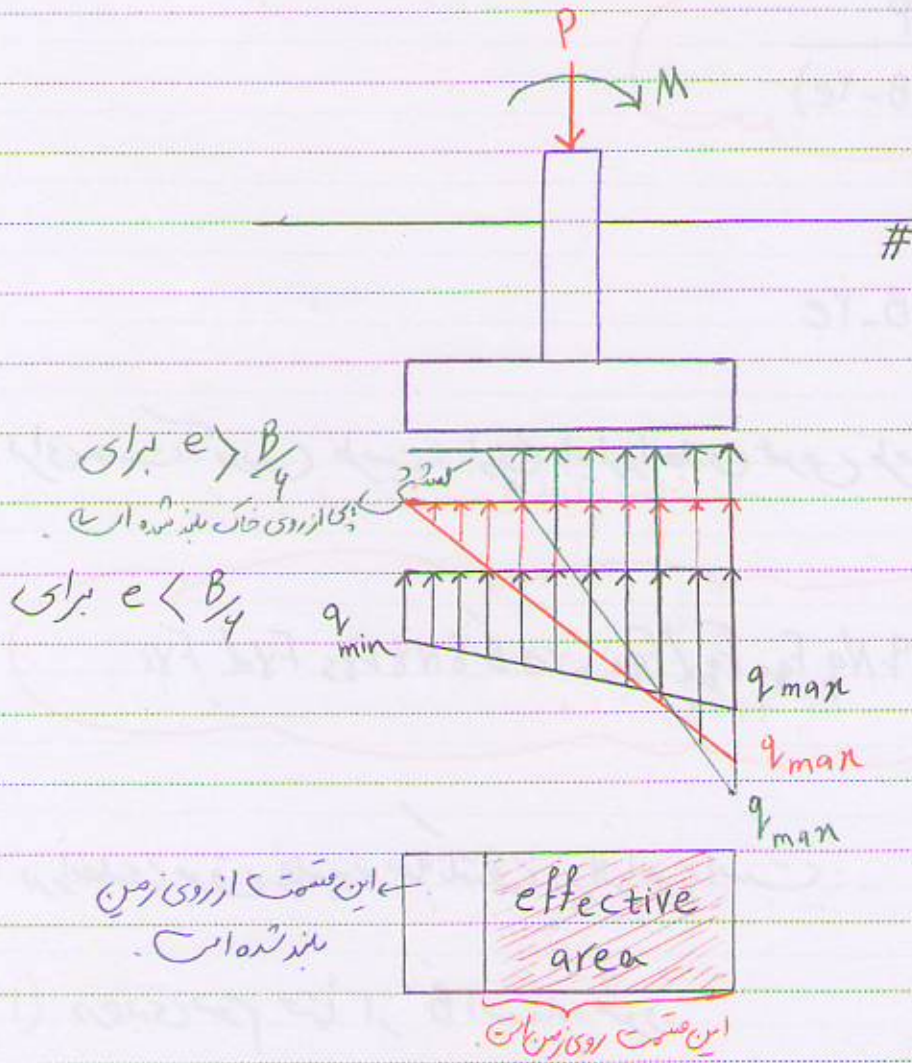 P
M
#
برای e > B/4
کشش
پی از روی خاک بلند شده است.
برای e < B/4
q min
q max
q max
q max
این قسمت از روی زمین
بلند شده است.
effective
area
این قسمت روی زمین است